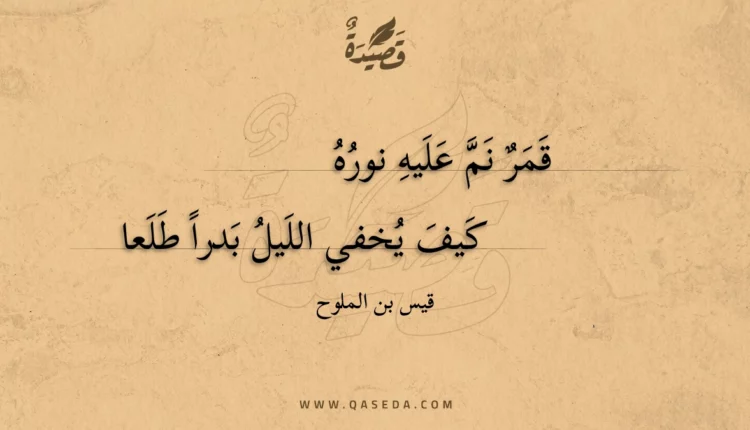 قَصِيدَةٌ
قَمَرٌ نَمَّ عَلَيهِ نورُهُ
كَيفَ يُخفي اللَيلُ بَدراً طَلَعا
قيس بن الملوح
WWW.QASEDA.COM